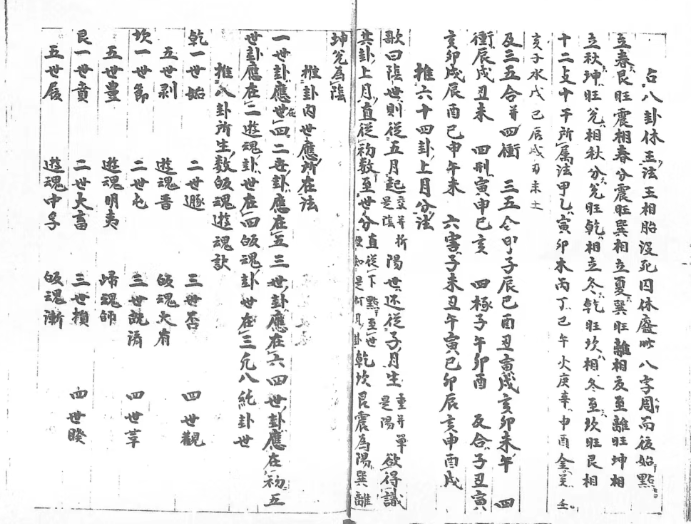 占八卦休王法王相胎沒死囚休廢此八字周而復始點
立春艮旺震相春分震旺巽相立夏巽旺離相夏至離旺坤相
立秋坤旺兌相秋分兌旺乾相立冬乾旺坎相冬至坎旺艮相
十二支十干所屬法甲乙寅卯木丙丁巳午火庚辛申酉金壬
亥子水戊己辰戌丑未土
及三五合并四衝 三五合申子辰巳酉丑寅戌亥卯未午 四
衝辰戌丑未 四刑寅申巳亥 四極子午卯酉 及合子丑寅
亥卯戌辰酉巳申午未 六害子未丑午寅巳卯辰亥申酉戌
推六十四卦上月分法
歌曰陰世則從五月起交并折是陰陽世還從子月生重并單是陽欲得識
其卦上月直從初數至世分直從下點至世便知是何月卦乾坎艮震為陽巽離
坤兌為陰
推卦內世應所在法
一世卦應在四二世卦應在五三世卦應在六四世卦應在初五
世卦應在二遊魂卦世在四皈魂卦世在三凡八純卦世
推八卦所生數皈魂遊魂訣
乾一世姤 二世遯 三世否 四世觀
五世剥 遊魂晉 皈魂大有
坎一世節 二世屯 三世既濟 四世革
五世豊 遊魂明夷 歸魂師
艮一世賁 二世大畜 三世損 四世睽
五世履 遊魂中孚 皈魂漸